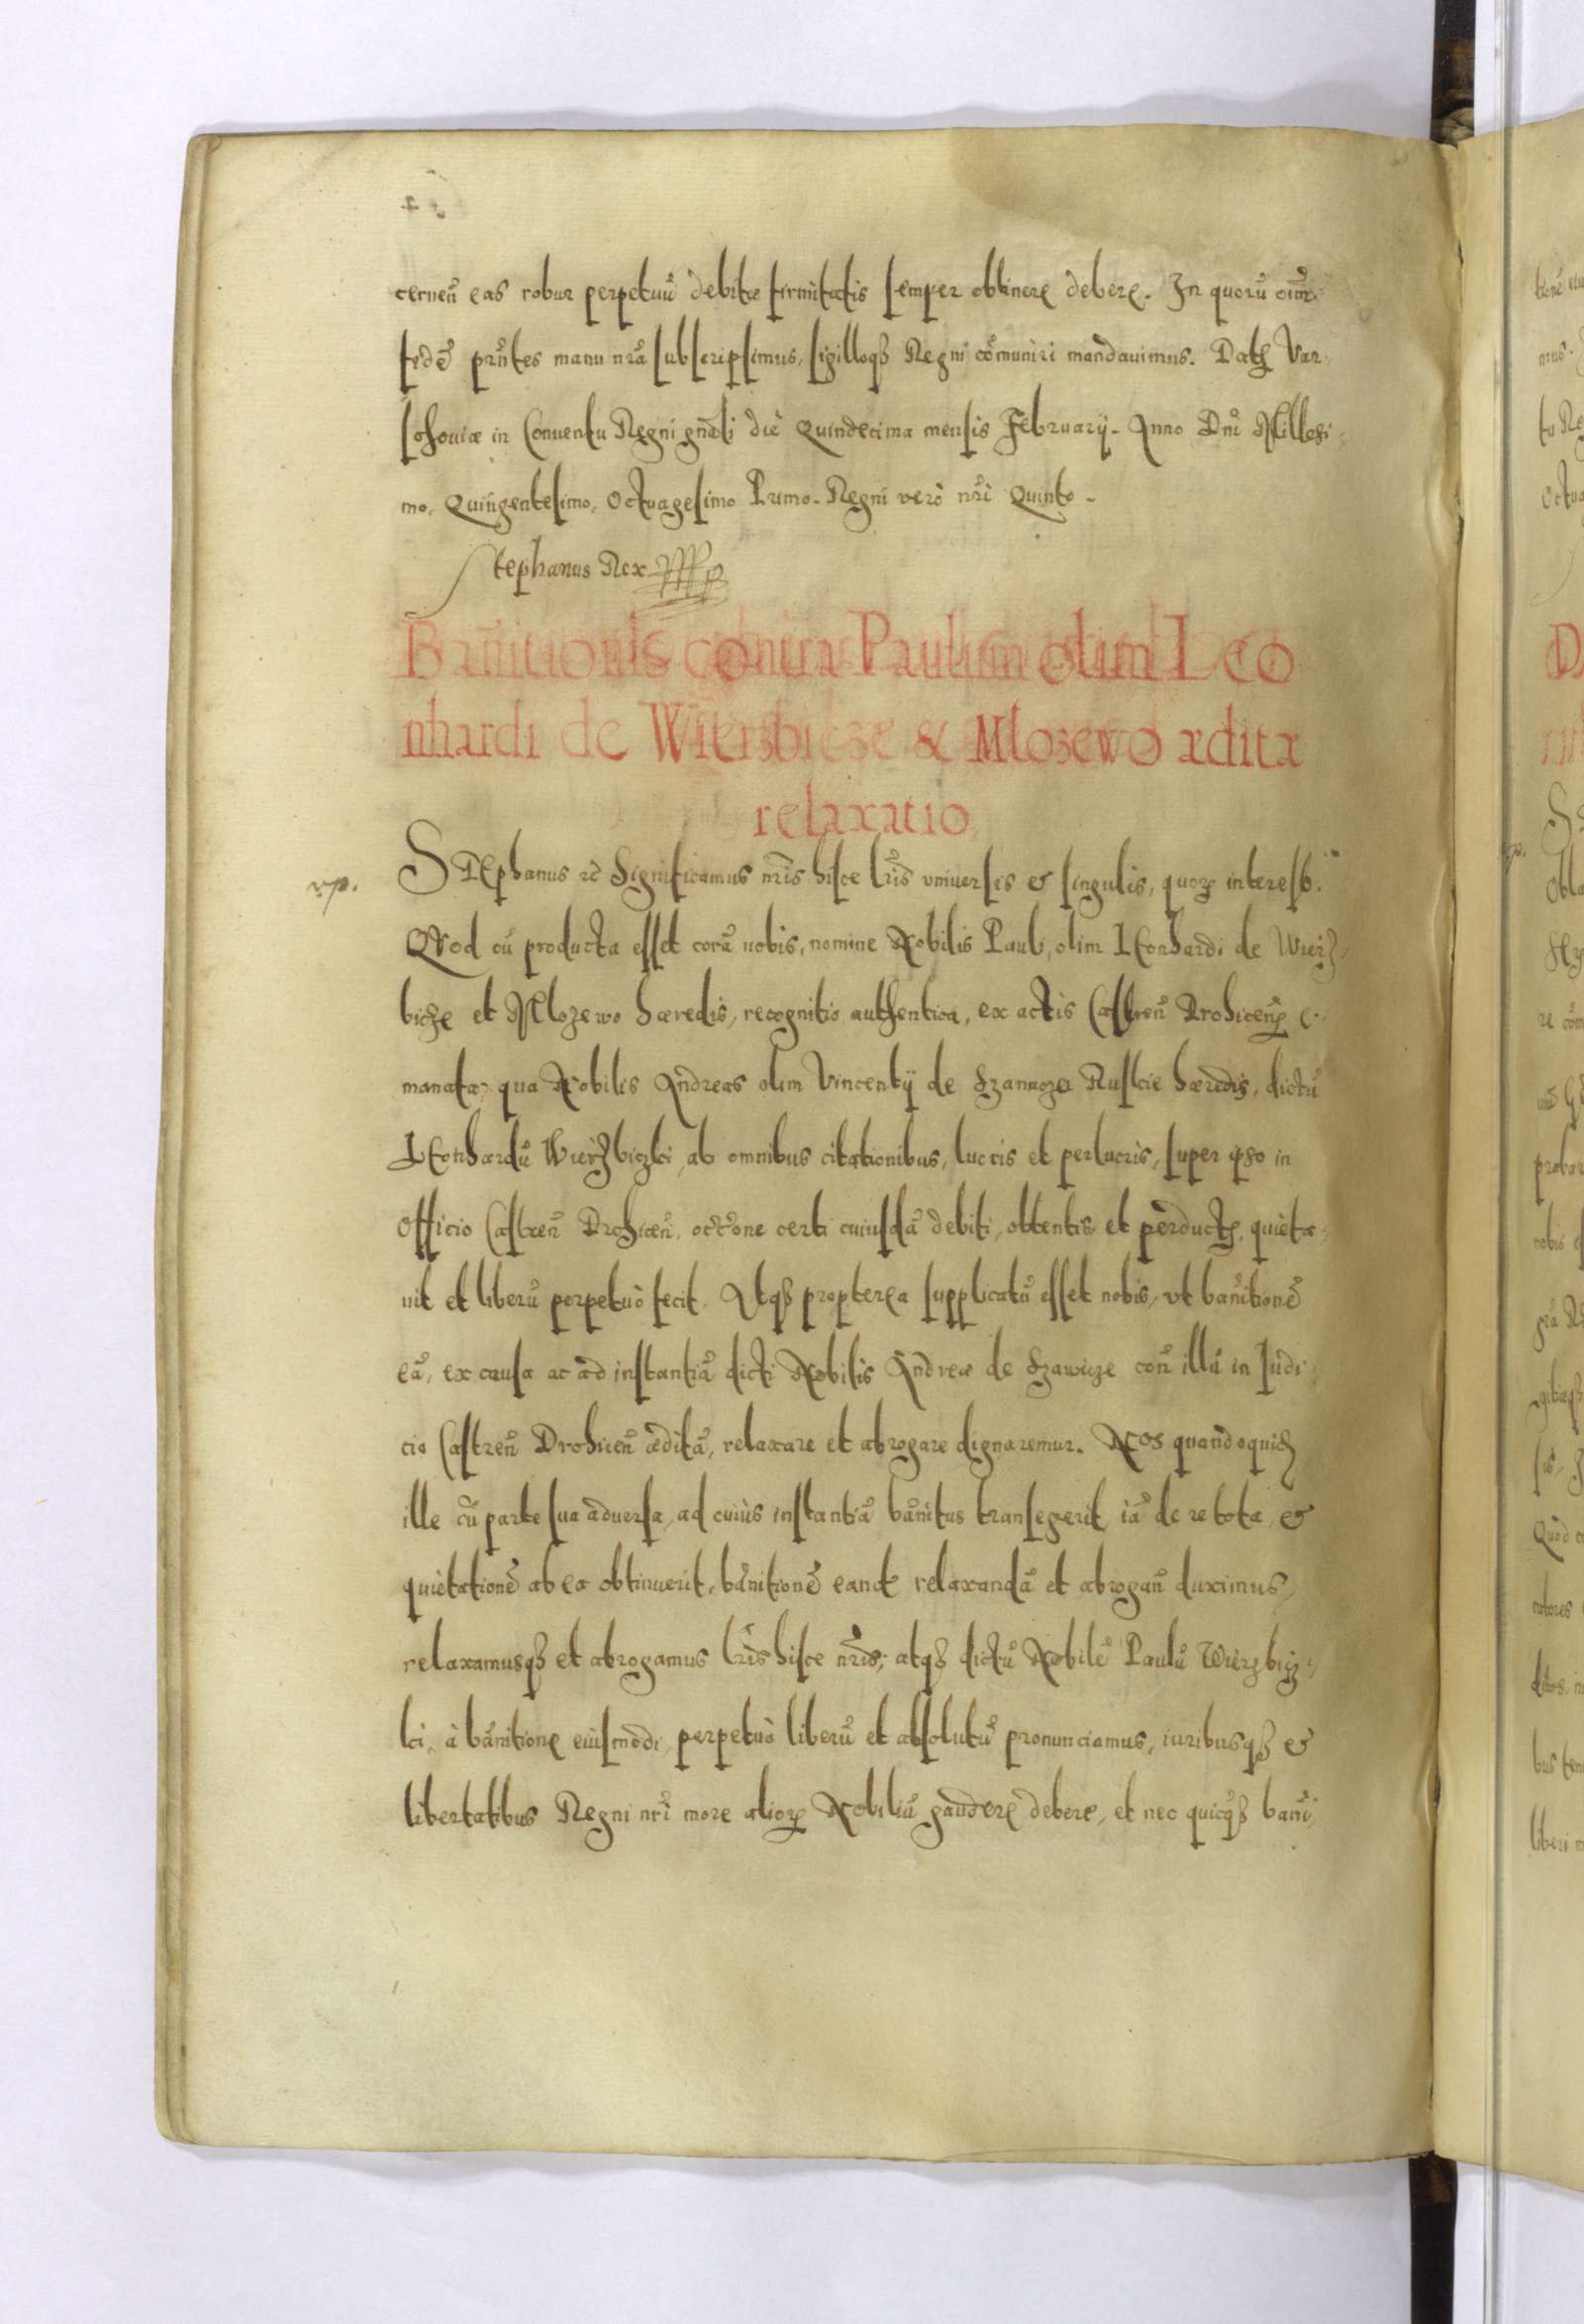 cerneñ eas robur perpetuũ debitæ firmitatis semper obtinere debere. In quorũ oim̃
fidẽ pr̃ntes manu nr̃a subscripsimus, sigilloqʒ Regni cõmuniri mandauimus. Datȝ Var-
sohouiæ in Conuentu Regni gñali die Quindecima mensis February. Anno Dñi Millesi-
mo, Quingentesimo, Octuagesimo Primo. Regni verò nr̃i Quinto.
Stephanus Rex
Bañitionis contra Paulum olim Leo
nhardi de Wierzbicze & Mlozewo ædita
relaxatio,
rp.
STEphanus rc Significamus nr̃is hisce lr̃is vniuersis et singulis, quorȝ interest.
QVod cũ producta esset corã nobis, nomine Nobilis Pauli, olim LEonhardi de Wierz-
bicze et Mlozewo hæredis, recognitio authentica, ex actis Castreñ Drohiceñ e-
manata, qua Nobilis Andreas olim Vincentÿ de Ruskie hæredis, dictũ
LEonhardũ Wierzbiczki, ab omnibus citationibus, lucris et perlucris, super ipso in
Officio Castreñ Drohiceñ, occõne certi cuiusdã debiti, obtentis et perductȝ, quieta-
uit et liberũ perpetuò fecit. Atqʒ propterea supplicatũ esset nobis, vt bañitionẽ
eã, ex causa ac ad instantiã dicti Nobilis Andreæ de Szawicze coñ illũ in Iudi-
cio Castreñ Drohiceñ æditã, relaxare et abrogare dignaremur. NOs quandoquidȝ
ille cũ parte sua aduersa, ad cuius instantiã bañitus transegerit, iã de re tota, et
quietationẽ ab ea obtinuerit, bañitionẽ eandȝ relaxandã et abrogañ duximus,
relaxamusqʒ et abrogamus lr̃is hisce nr̃is; atqʒ dictũ Nobilẽ Paulũ Wierzbicz-
ki, à bañitione eiusmodi, perpetuò liberũ et absolutũ pronunciamus, iuribusqʒ et
libertatibus Regni nr̃i more aliorȝ Nobiliũ gaudere debere, et nec quicqʒ bañi-